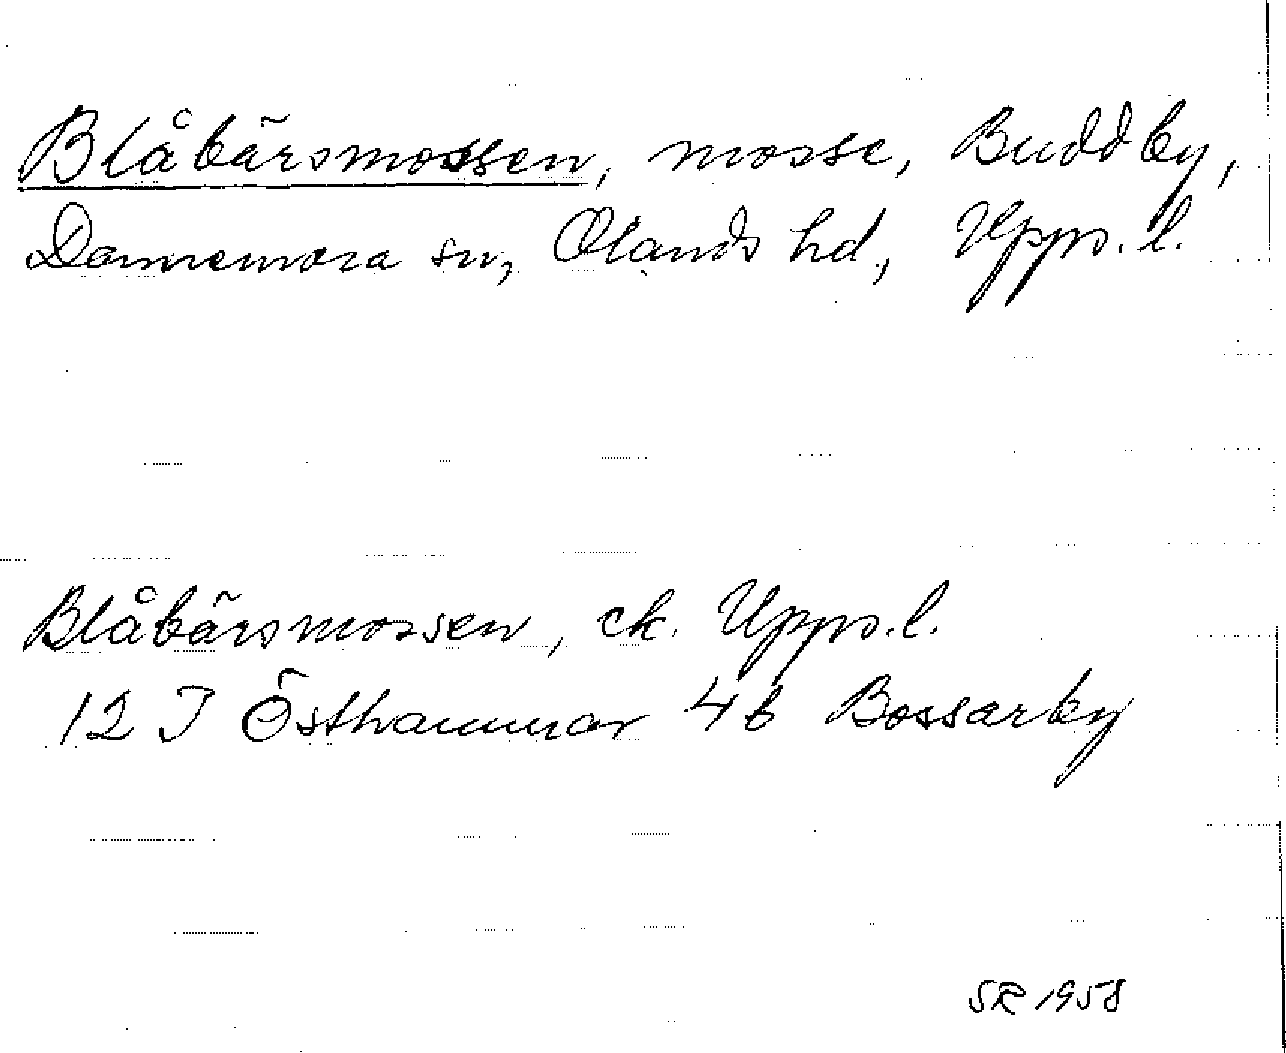 Blåbärsmossen, mosse, Buddby,
Dannemora sn, Olands hd, Upps. l.
Blåbärsmossen, ek. Upps. l.
12 I Östhammar 4b Bossarby
SR 1958